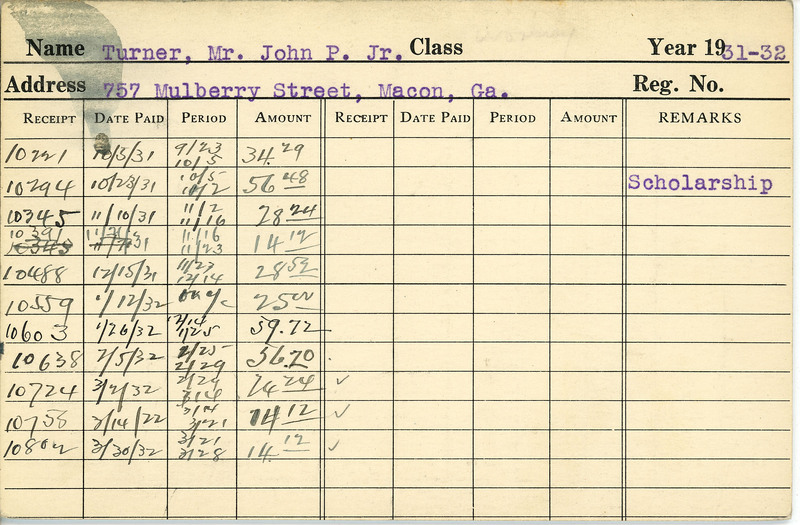 Name Turner, Mr. John P. Jr. Class Year 1931-32
Address 757 Mulberry Street, Macon, Ga. Reg. No.
RECEIPT DATE PAID PERIOD AMOUNT RECEIPT DATE PAID PERIOD AMOUNT REMARKS
10221 10/5/31 9/23 10/5 34.29
10294 10/23/31 10/5 56 48 Scholarship
10345 11/10/31 11/2 11/16 28 24
10391 11/16 11/23 14 12
10488 12/15/31 11/23 12/14 28
10559 1/12/32 25 00
10603 1/26/32 12/14 1/25 59.72
10638 2/5/32 2/29 56.70
10724 3/2/32 2/29 3/14 24 ✓
10758 3/14/22 3/14 3/21 14 12 ✓
10802 3/30/32 3/21 3/28 14. 12 ✓